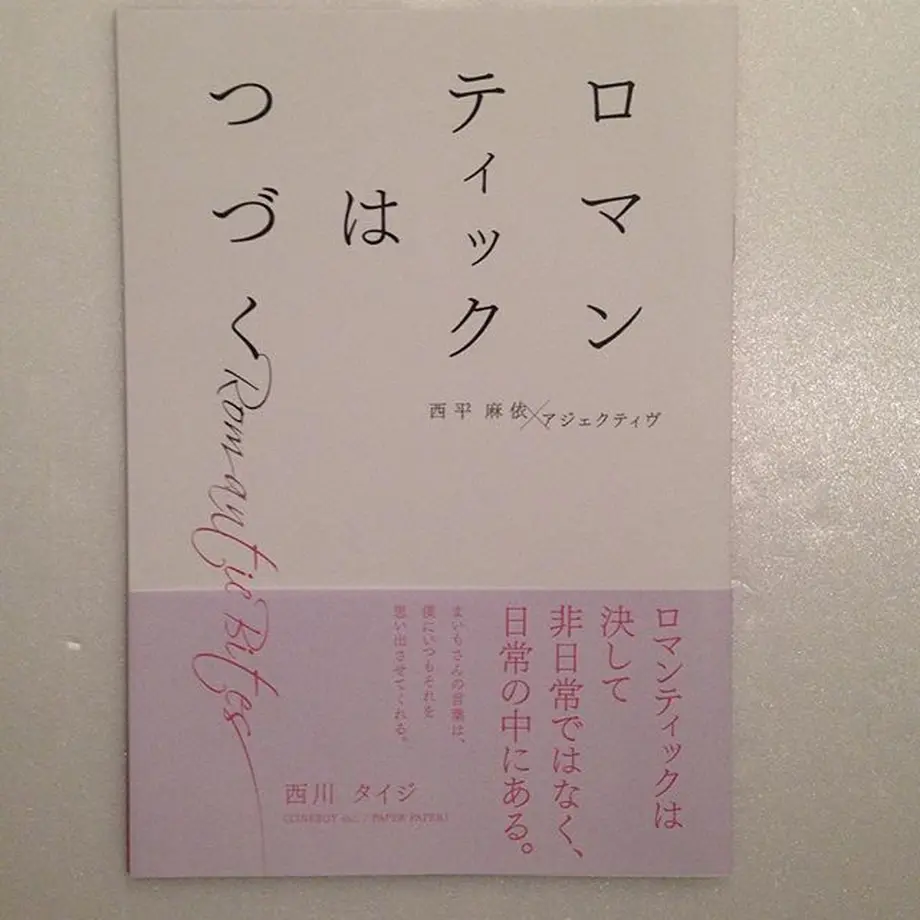 ロマン
ティック
は
つづく
西平 麻依×アジェクティヴ
Romantic Bites
ロマンティックは
決して
非日常ではなく、
日常の中にある。
まいもさんの言葉は、
僕にいつもそれを
思い出させてくれる。
西川 タイジ
(CINEBOY etc. / PAPER PAPER)